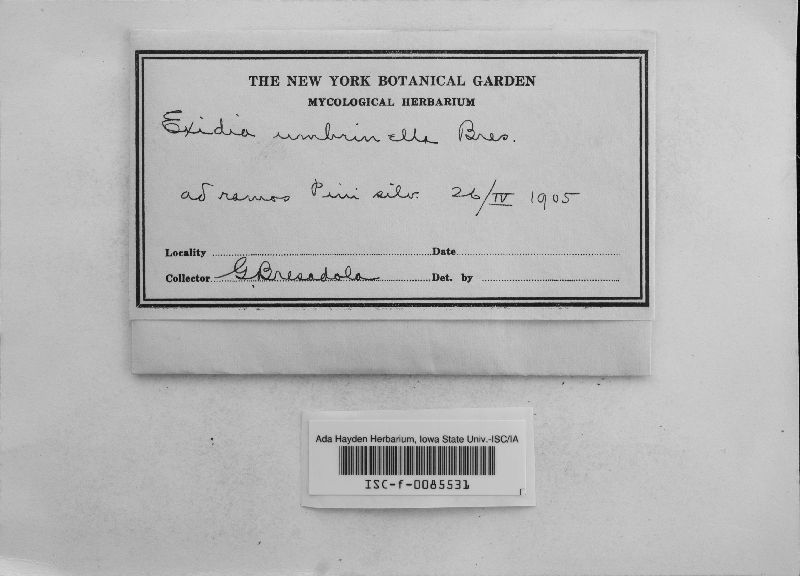 THE NEW YORK BOTANICAL GARDEN
MYCOLOGICAL HERBARIUM
Exidia umbrinella Bres.
ad ramos Pini silv. 26/IV 1905
Locality Date
Collector G Bresadola Det. by
Ada Hayden Herbarium, Iowa State Univ.-ISC/IA
ISC-f-0085531